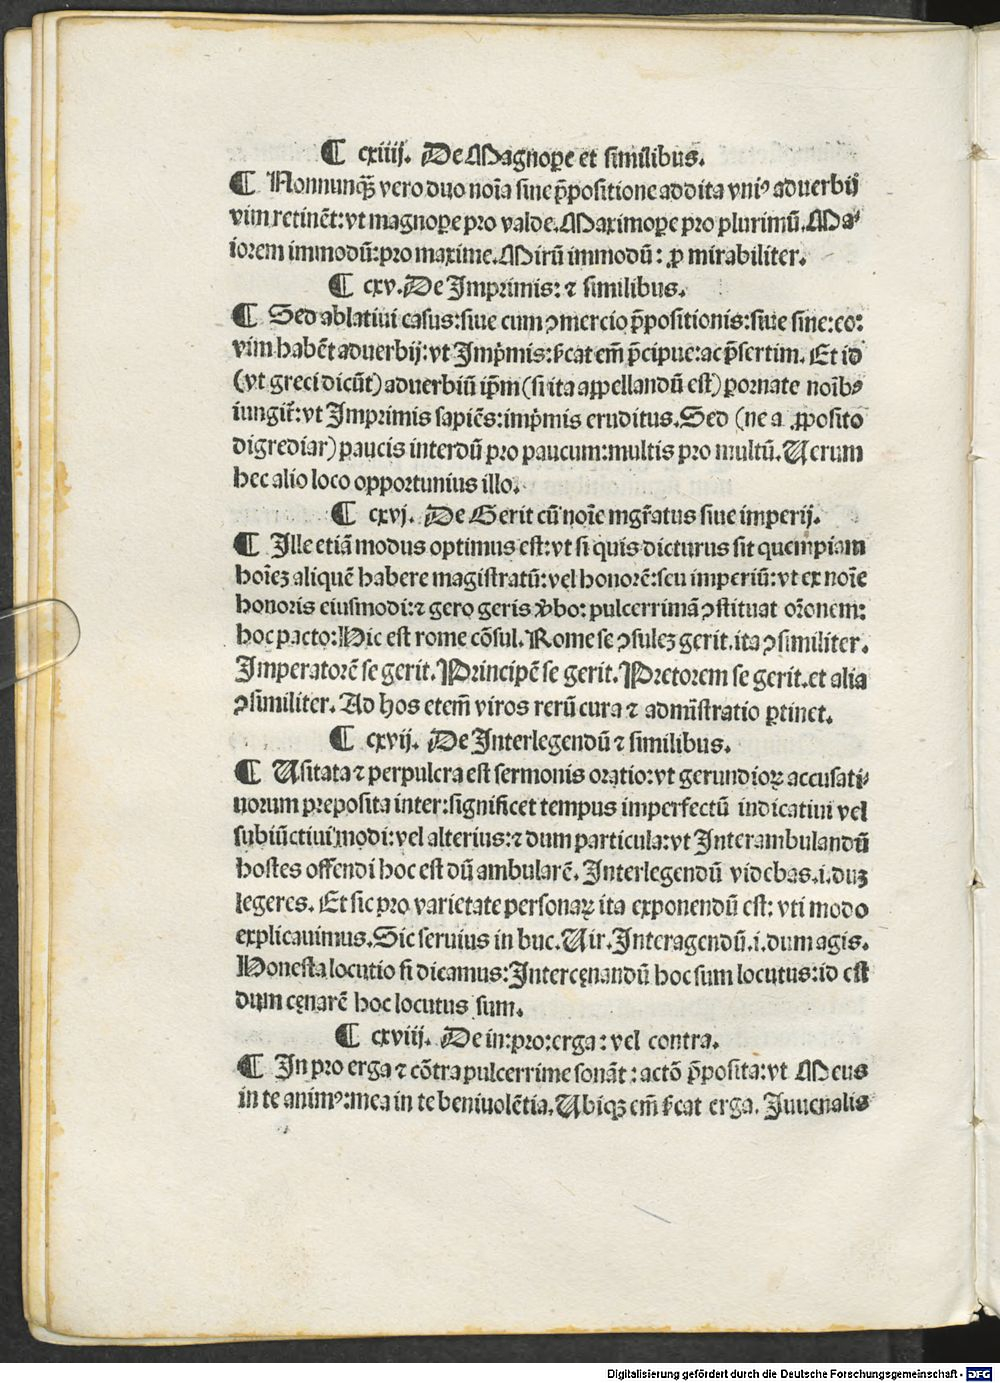 ¶ cxiiij. De Magnope et similibus.
¶ Nonnunqꝫ vero duo noı̄a sine p̄positione addita vniꝰ aduerbij
vim retinēt: vt magnoꝑe pro valde. Maximoꝑe pro plurimū. Ma⸗
iorem immodū: pro maxime. Mirū immodū: ꝓ mirabiliter.
¶ cxv. De Imprimis: ⁊ similibus.
¶ Sed ablatiui casus: siue cum ꝯmercio p̄positionis: siue sine: eo:
vim habēt aduerbij: vt Imp̍mis: sīcat em̄ p̄cipue: ac p̄sertim. Et id
(vt greci dicūt) aduerbiū ip̄m (si ita appellandū est) ꝑornate noı̄bꝰ
iungit̄: vt Imprimis sapiēs: imp̍mis eruditus. Sed (ne a ꝓposito
digrediar) paucis interdū pro paucum: multis pro multū. Uerum
hec alio loco opportunius illo.
¶ cxvj. De Gerit cū noı̄e mgr̄atus siue imperij.
¶ Ille etiā modus optimus est: vt si quis dicturus sit quempiam
hoı̄eꝫ aliquē habere magistratū: vel honorē: seu imperiū: vt ex noı̄e
honoris eiusmodi: ⁊ gero geris v̄bo: pulcerrimā ꝯstituat or̄onem:
hoc pacto: Hic est rome cōsul. Rome se ꝯsuleꝫ gerit. ita ꝯsimiliter.
Imperatorē se gerit. Principē se gerit. Pretorem se gerit. et alia
ꝯsimiliter. Ad hos etem̄ viros rerū cura ⁊ admı̄stratio ꝑtinet.
¶ cxvij. De Interlegendū ⁊ similibus.
¶ Usitata ⁊ perpulcra est sermonis oratio: vt gerundioꝝ accusati⸗
uorum preposita inter: significet tempus imperfectū indicatiui vel
subiūctiui modi: vel alterius: ⁊ dum particula: vt Interambulandū
hostes offendi hoc est dū ambularē. Interlegendū videbas .i. duꝫ
legeres. Et sic pro varietate personaꝝ ita exponendū est: vti modo
explicauimus. Sic seruius in buc. Uir. Interagendū .i. dum agis.
Honesta locutio si dicamus: Intercęnandū hoc sum locutus: id est
dum cęnarē hoc locutus sum.
¶ cxviij. De in: pro: erga: vel contra.
¶ In pro erga ⁊ cōtra pulcerrime sonāt: actō p̄posita: vt Meus
in te animꝰ: mea in te beniuolētia. Ubiqꝫ em̄ sīcat erga. Juuenalis
Digitalisierung gefördert durch die Deutsche Forschungsgemeinschaft - DFG